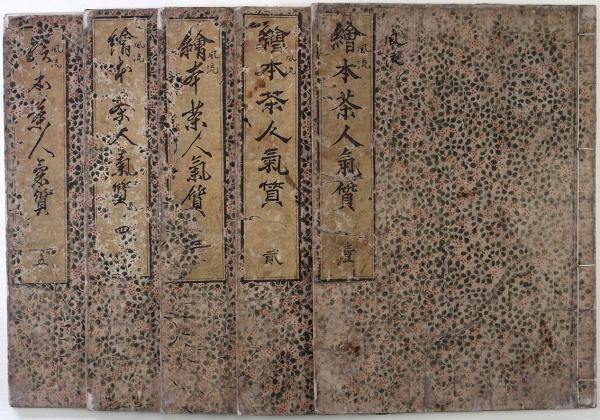 風流
風流
繪本茶人氣質
壹
風流
繪本茶人氣質
貳
風流
繪本茶人氣質
三
風流
繪本茶人氣質
四
風流
繪本茶人氣質
五